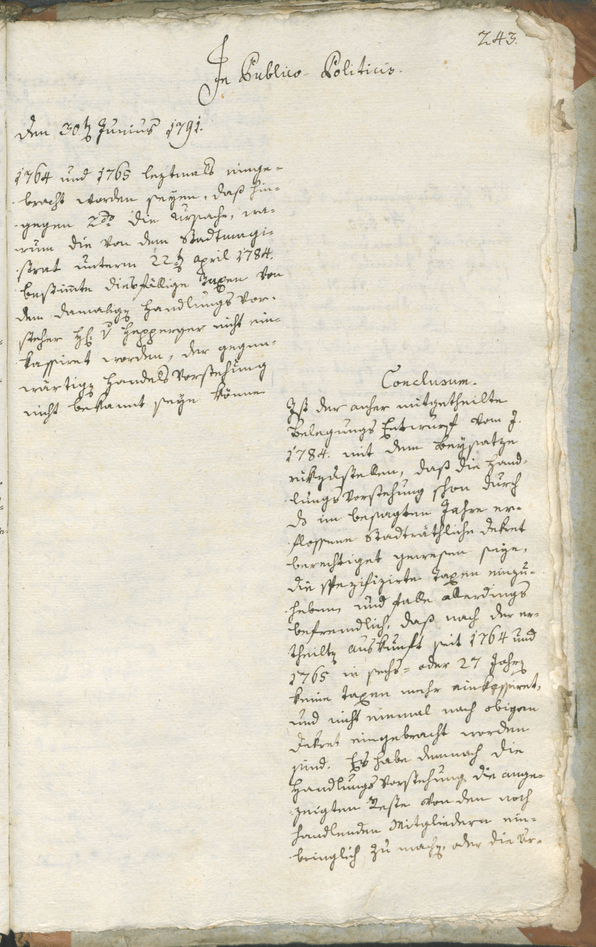 243.
In Publico-Politicis.
den 30t Junius 1791.
1764 und 1765 leztmals einge-
bracht worden seyen, daß hin-
gegen 2do die Ursache, wa-
rum die von dem Stadtmagi-
strat unterm 22t April 1784.
bestimte diesfällige Taxen von
dem damalig Handlungs Vor-
steher H v Hepperger nicht ein-
kassiret worden, der gegen-
wärtig Handels Vorstehung
nicht bekannt seye könne
Conclusum.
Ist der anher mitgetheilte
Belegungs Entwurf vom J.
1784. mit dem Beysatze
rükzustellen, daß die Hand-
lungs Vorstehung schon durch
ds im besagten Jahre er-
flossene Stadträthliche Dekret
berechtiget gewesen seye,
die spezifizirte Taxen einzu-
heben, und falle allerdings
befremdlich, daß nach der er-
theilt Auskunft seit 1764 und
1765 in sechs- oder 27 Jahr
keine Taxen mehr einkassiret,
und nicht einmal nach obigem
Dekret eingebracht worden
sind. Es habe demnach die
Handlungs Vorstehung die ange-
zeigten Reste von den noch
handlenden Mitgliedern ein-
bringlich zu mach, oder die Ur-